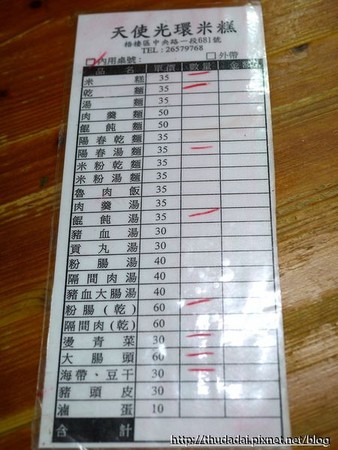 天使光環米糕
梧棲區中央路一段681號
TEL:26579768
內用桌號: 外帶
品名 單價 數量 金額
米糕 35
乾麵 35
湯麵 35
肉羹麵 50
餛飩麵 50
陽春乾麵 35
陽春湯麵 35
米粉乾麵 35
米粉湯麵 35
魯肉飯 35
肉羹湯 35
餛飩湯 35
豬血湯 30
貢丸湯 30
粉腸湯 40
隔間肉湯 40
豬血大腸湯 40
粉腸(乾) 60
隔間肉(乾) 60
燙青菜 30
大腸頭 60
海帶、豆干 30
豬頭皮 30
滷蛋 10
合計
http://thudadai.pixnet.net/blog